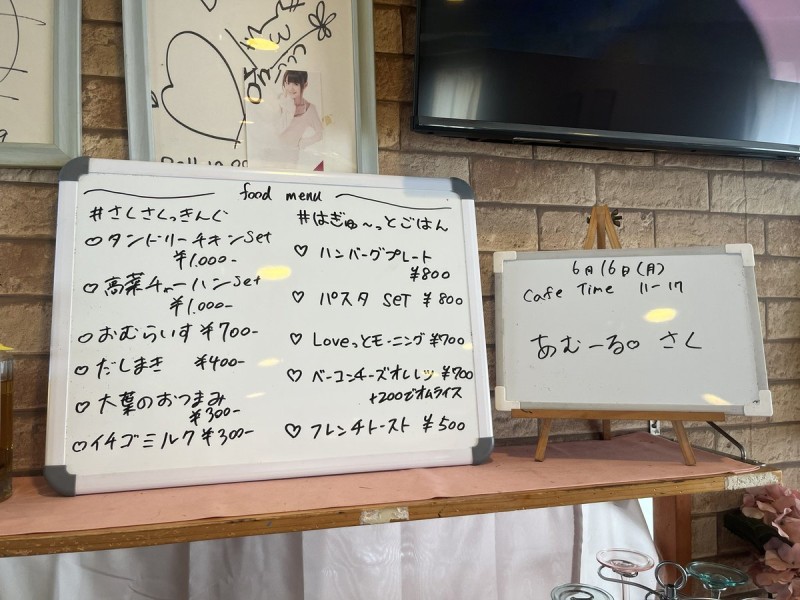 food menu
#さくさくっきんぐ
○タンドリーチキンSet
¥1,000-
○高菜チャーハンSet
¥1,000-
○おむらいす ¥700-
○だしまき ¥400-
○大葉のおつまみ
¥300-
○イチゴミルク ¥300-
#はぎゅ〜っとごはん
♡ ハンバーグプレート
¥800
♡ パスタ SET ¥800
♡ Loveっとモーニング ¥700
♡ ベーコンチーズオムレツ ¥700
+200でオムライス
♡ フレンチトースト ¥500
6月16日(月)
Cafe Time 11-17
あむーる。さく